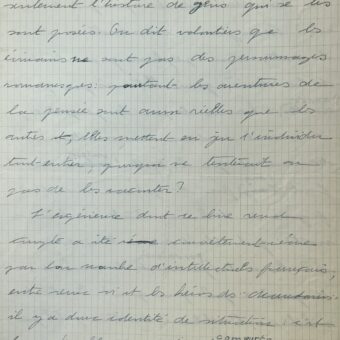 seulement l'histoire de gens qui se les
sont posées. On dit volontiers que les
écrivains ne sont pas des personnages
romanesques : pourtant les aventures de
la pensée sont aussi réelles que les
autres et, elles mettent en jeu l'individu
tout entier, pourquoi ne tenterait on
pas de les raconter ?
L'expérience dont ce livre rend
compte a été concrètement vécue
par bon nombre d'intellectuels français,
entre eux et les héros
il y a donc identité de situation : c'est